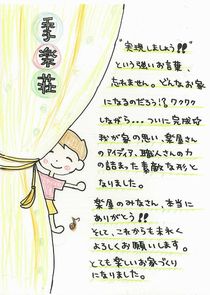 季楽荘
"実現しましょう!!"
という強いお言葉、
忘れません。どんなお家
になるのだろう!?ワクワク
しながら…ついに完成☆
我が家の思い、楽屋さん
のアイディア、職人さんの力
の詰まった素敵な形と
なりました。
楽屋のみなさん、本当に
ありがとう!!
そして、これからも末永く
よろしくお願いします。
とても楽しいお家づくり
になりました。